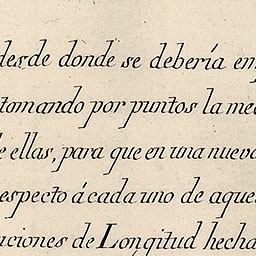 desde donde se debería em
tomando por puntos la me
e ellas, para que en una nueva
especto á cada uno de aque
aciones de Longitud hecha